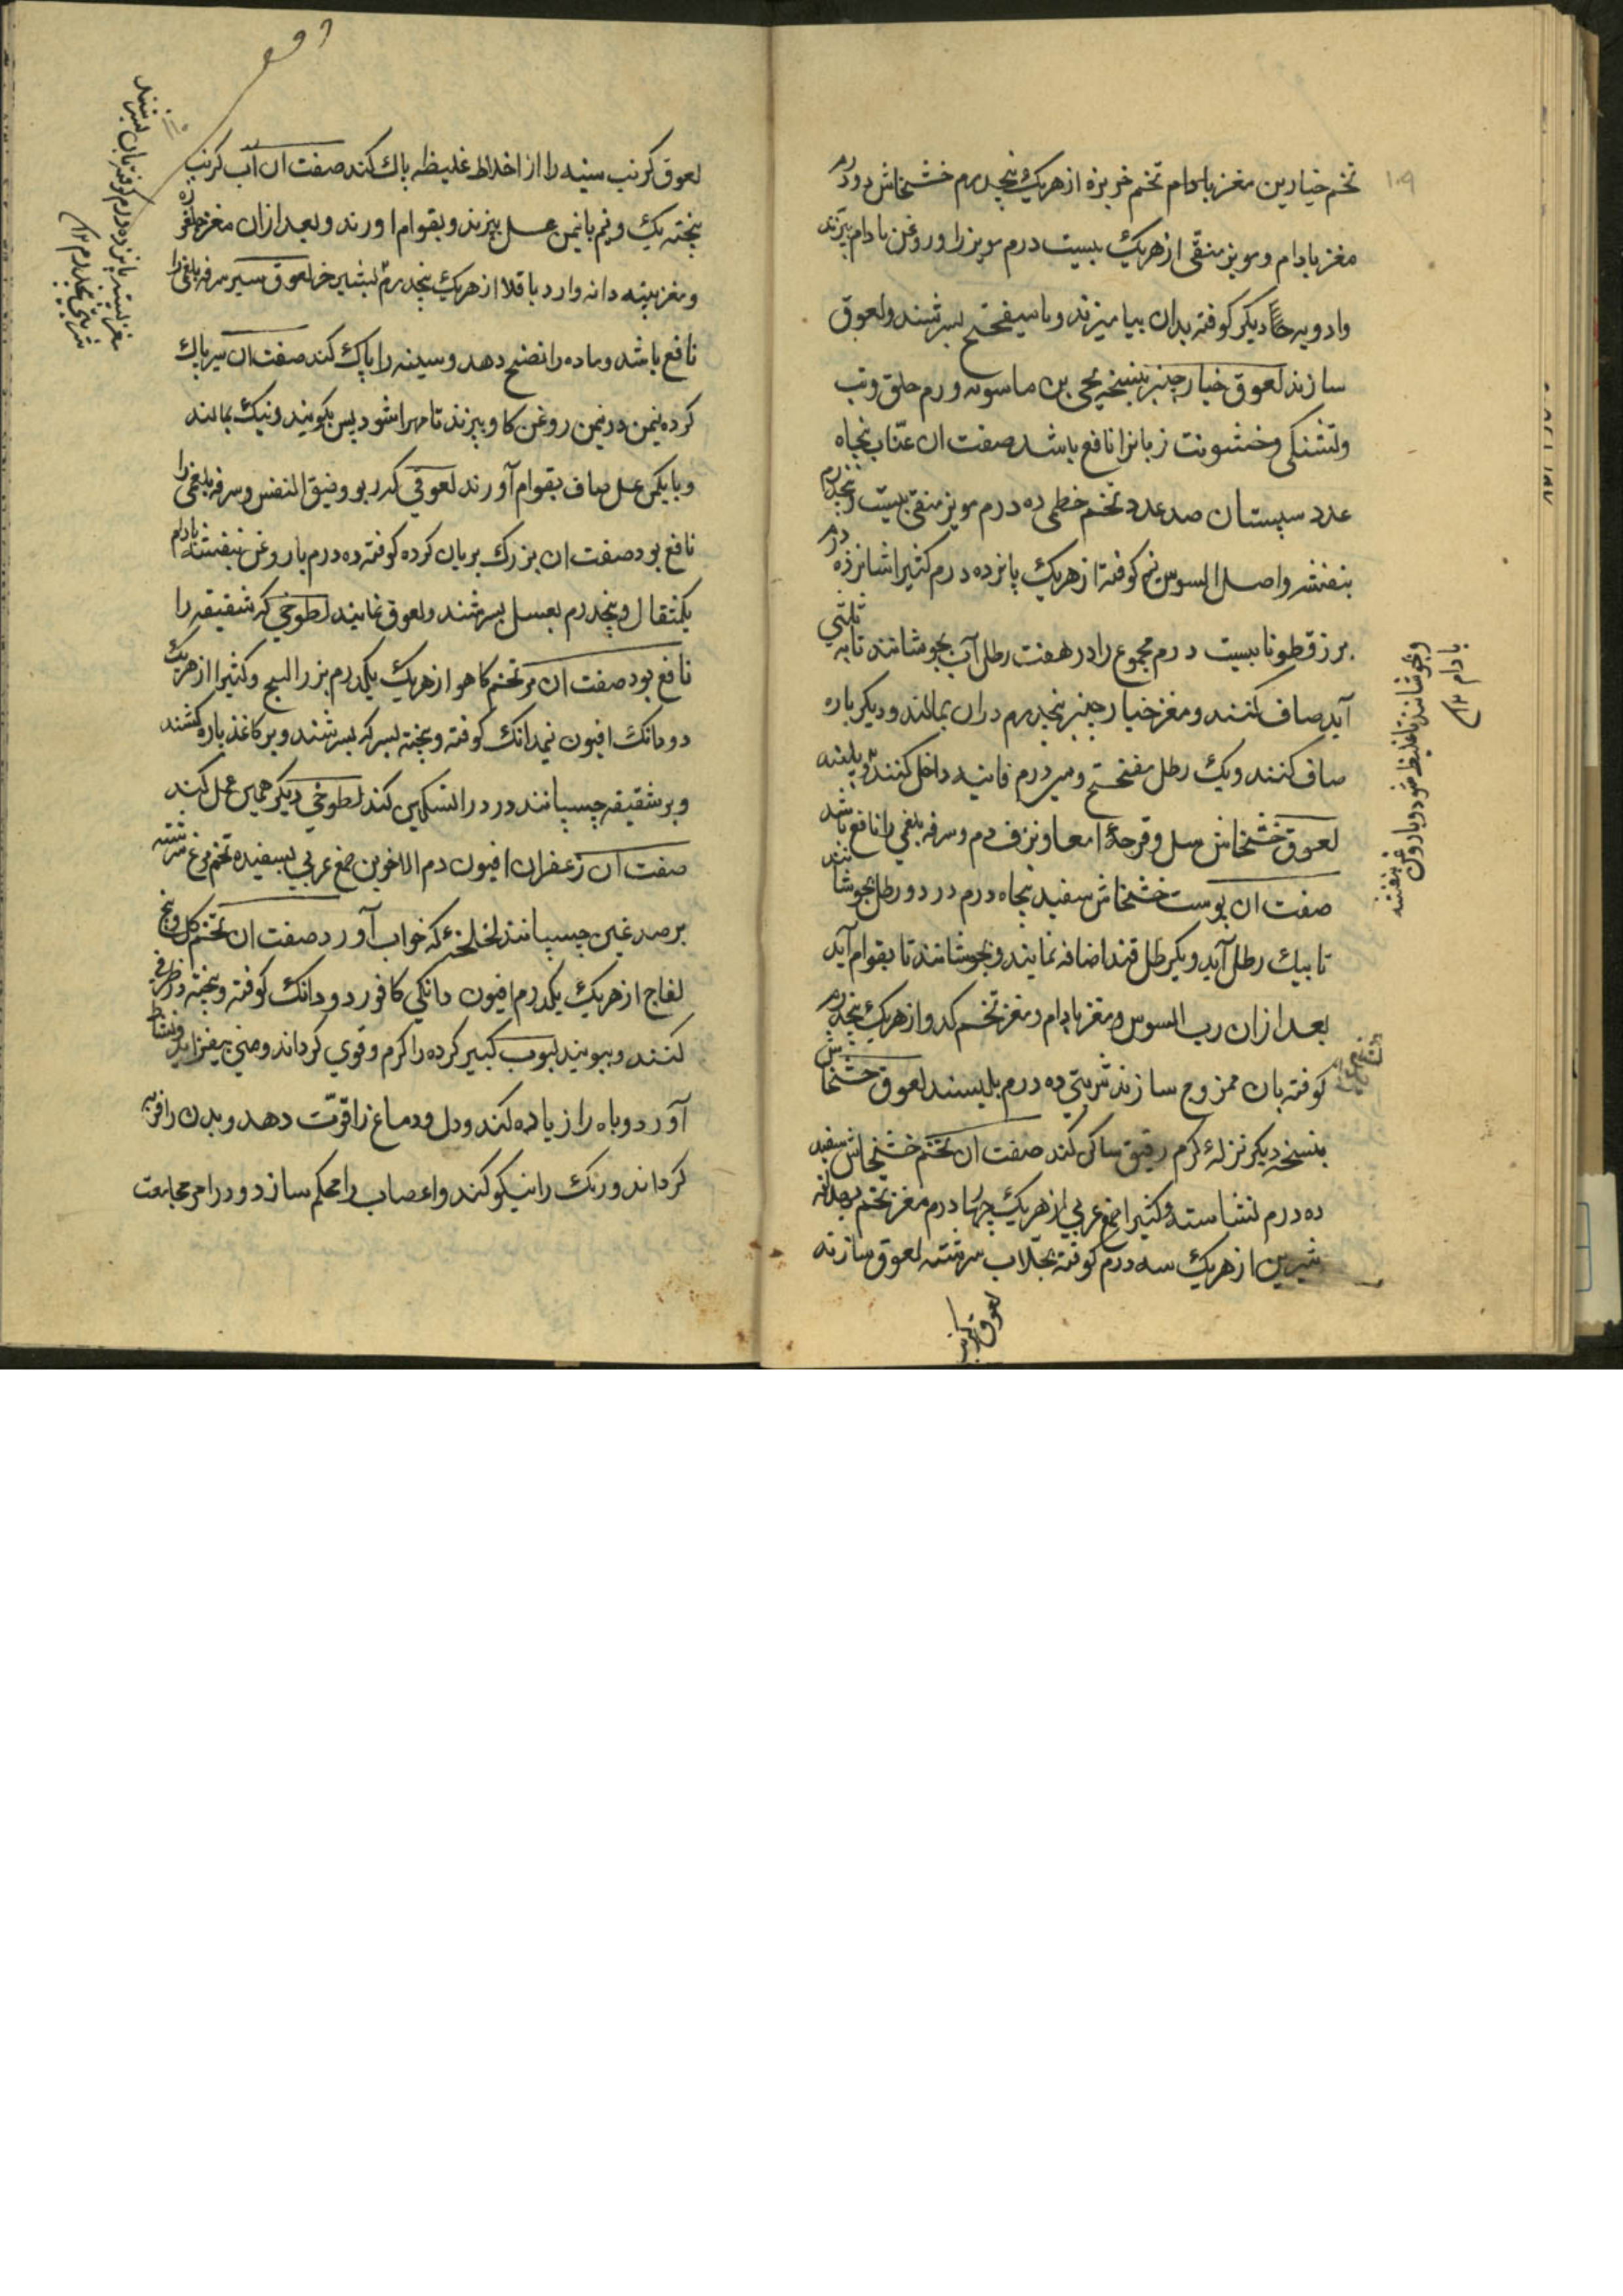 ۱۰۹
تخم خیارین مغز بادام تخم خربزه از هریک پنجدرم خشخاش دو درم
مغز بادام و مویز منقی از هریک بیست درم مویز را در روغن بادام بپزند
و ادویه دیگر کوفته بدان بیامیزند و با میفختج بسرشند و لعوق
سازند لعوق خیارچنبر بنسخه یحیی بن ماسویه ورم حلق و تب
و تشنکی و خشونت زبانرا نافع باشد صفت ان عنّاب پنجاه
عدد سپستان صد عدد تخم خطمی ده درم مویز منقی بیست پنجدرم
بنفشه و اصل السوس نیم کوفته از هریک پانزده درم کثیرا شانزده درم
بزرقطونا بیست درم مجموع را در هفت رطل آب بجوشانند تا به ثلثی
آید صاف کنند و مغز خیارچنبر پنجدرم دران بمالند و دیکر باره
صاف کنند و یک رطل مفختج و سیردرم فانید داخل کنند
لعوق خشخاش سل و قرحهٔ امعا و نزف دم و سرفه بلغمی را نافع باشد
صفت ان پوست خشخاش سفید پنجاه درم در دو رطل بجوشانند
تا بیک رطل آید و یکرطل قند اضافه نمایند و بجوشانند تا بقوام آید
بعد از ان رب السوس و مغز بادام و مغز تخم کدو از هریک پنجدرم
کوفته بان ممزوج سازند شربتی ده درم بلیسند لعوق خشخاش
بنسخه دیکر نزلهٔ کرم رقیق ساکن کند صفت ان تخم خشخاش سفید
ده درم نشاسته و کثیرا صمغ عربی از هریک چهار درم مغز تخم بهدانه
شیرین از هریک سه درم کوفته بجلاب سرشته لعوق سازند
لعوق کرنب
و بجوشانند تا غلیظ شود و با روغن بنفشه
بادام
لعوق کرنب سینه را از اخلاط غلیظه پاک کند صفت ان آب کرنب
پخته یک و نیم با نیمن عسل بپزند و بقوام اورند و بعد از ان مغز
و مغز پنبه دانه وارد باقلا از هریک پنجدرم لعوق سیر سرفه بلغمی را
نافع باشد و ماده را نضج دهد و سینه را پاک کند صفت ان سیر پاک
کرده نیمن در نیمن روغن کاو بپزند تا مهرا شود پس بکویند و نیک بمالند
و با یکمن عسل صاف بقوام آورند لعوقی که ربو و ضیق النفس و سرفه بلغمی را
نافع بود صفت ان بزرک بریان کرده کوفته ده درم با روغن بنفشه بادام
یکمثقال و پنجدرم بعسل بسرشند و لعوق نمایند لطوخی که شقیقه را
نافع بود صفت ان مر تخم کاهو از هریک یکدرم بزر البنج و کثیرا از هریک
دو دانک افیون نیمدانک کوفته و بیخته بسرکه بسرشند و بر کاغذ پاره کشند
و بر شقیقه چسپانند درد را تسکین کند لطوخی دیکر همین عمل کند
صفت ان زعفران افیون دم الاخوین صمغ عربی بسفیده تخم مرغ سرشته
بر صدغین چسپانند لخلخهٔ که خواب آورد صفت ان تخم کل و بیخ
لفاح از هریک یکدرم افیون دانکی کافور دو دانک کوفته و بیخته در ظرفی
کنند و ببویند لبوب کبیر کرده را کرم و قوی کرداند و منی بیفزاید و نشاط
آورد و باه را زیاده کند و دل و دماغ را قوّت دهد و بدن را فربه
کرداند و رنک را نیکو کند و اعصاب را محکم سازد و در امر مجامعت
مغز پسته پانزده درم کوفته بان بسرشند
شربتی پنجدرم